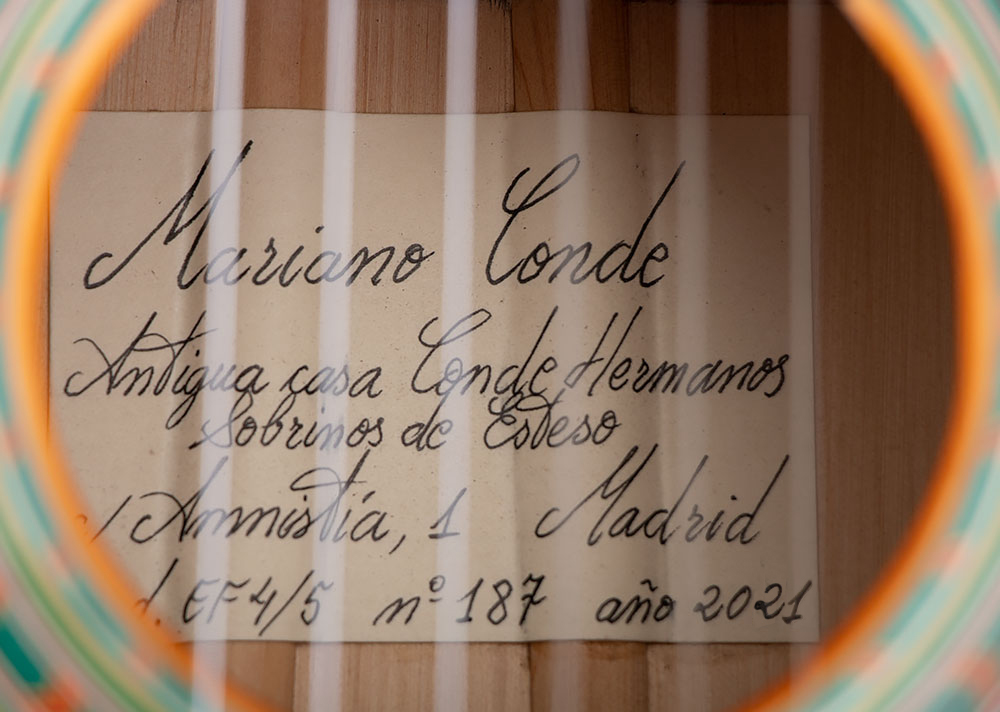 Mariano Conde
Antigua casa Conde Hermanos
Sobrinos de Esteso
/ Amnistía, 1 Madrid
d. EF4/5 nº 187 año 2021